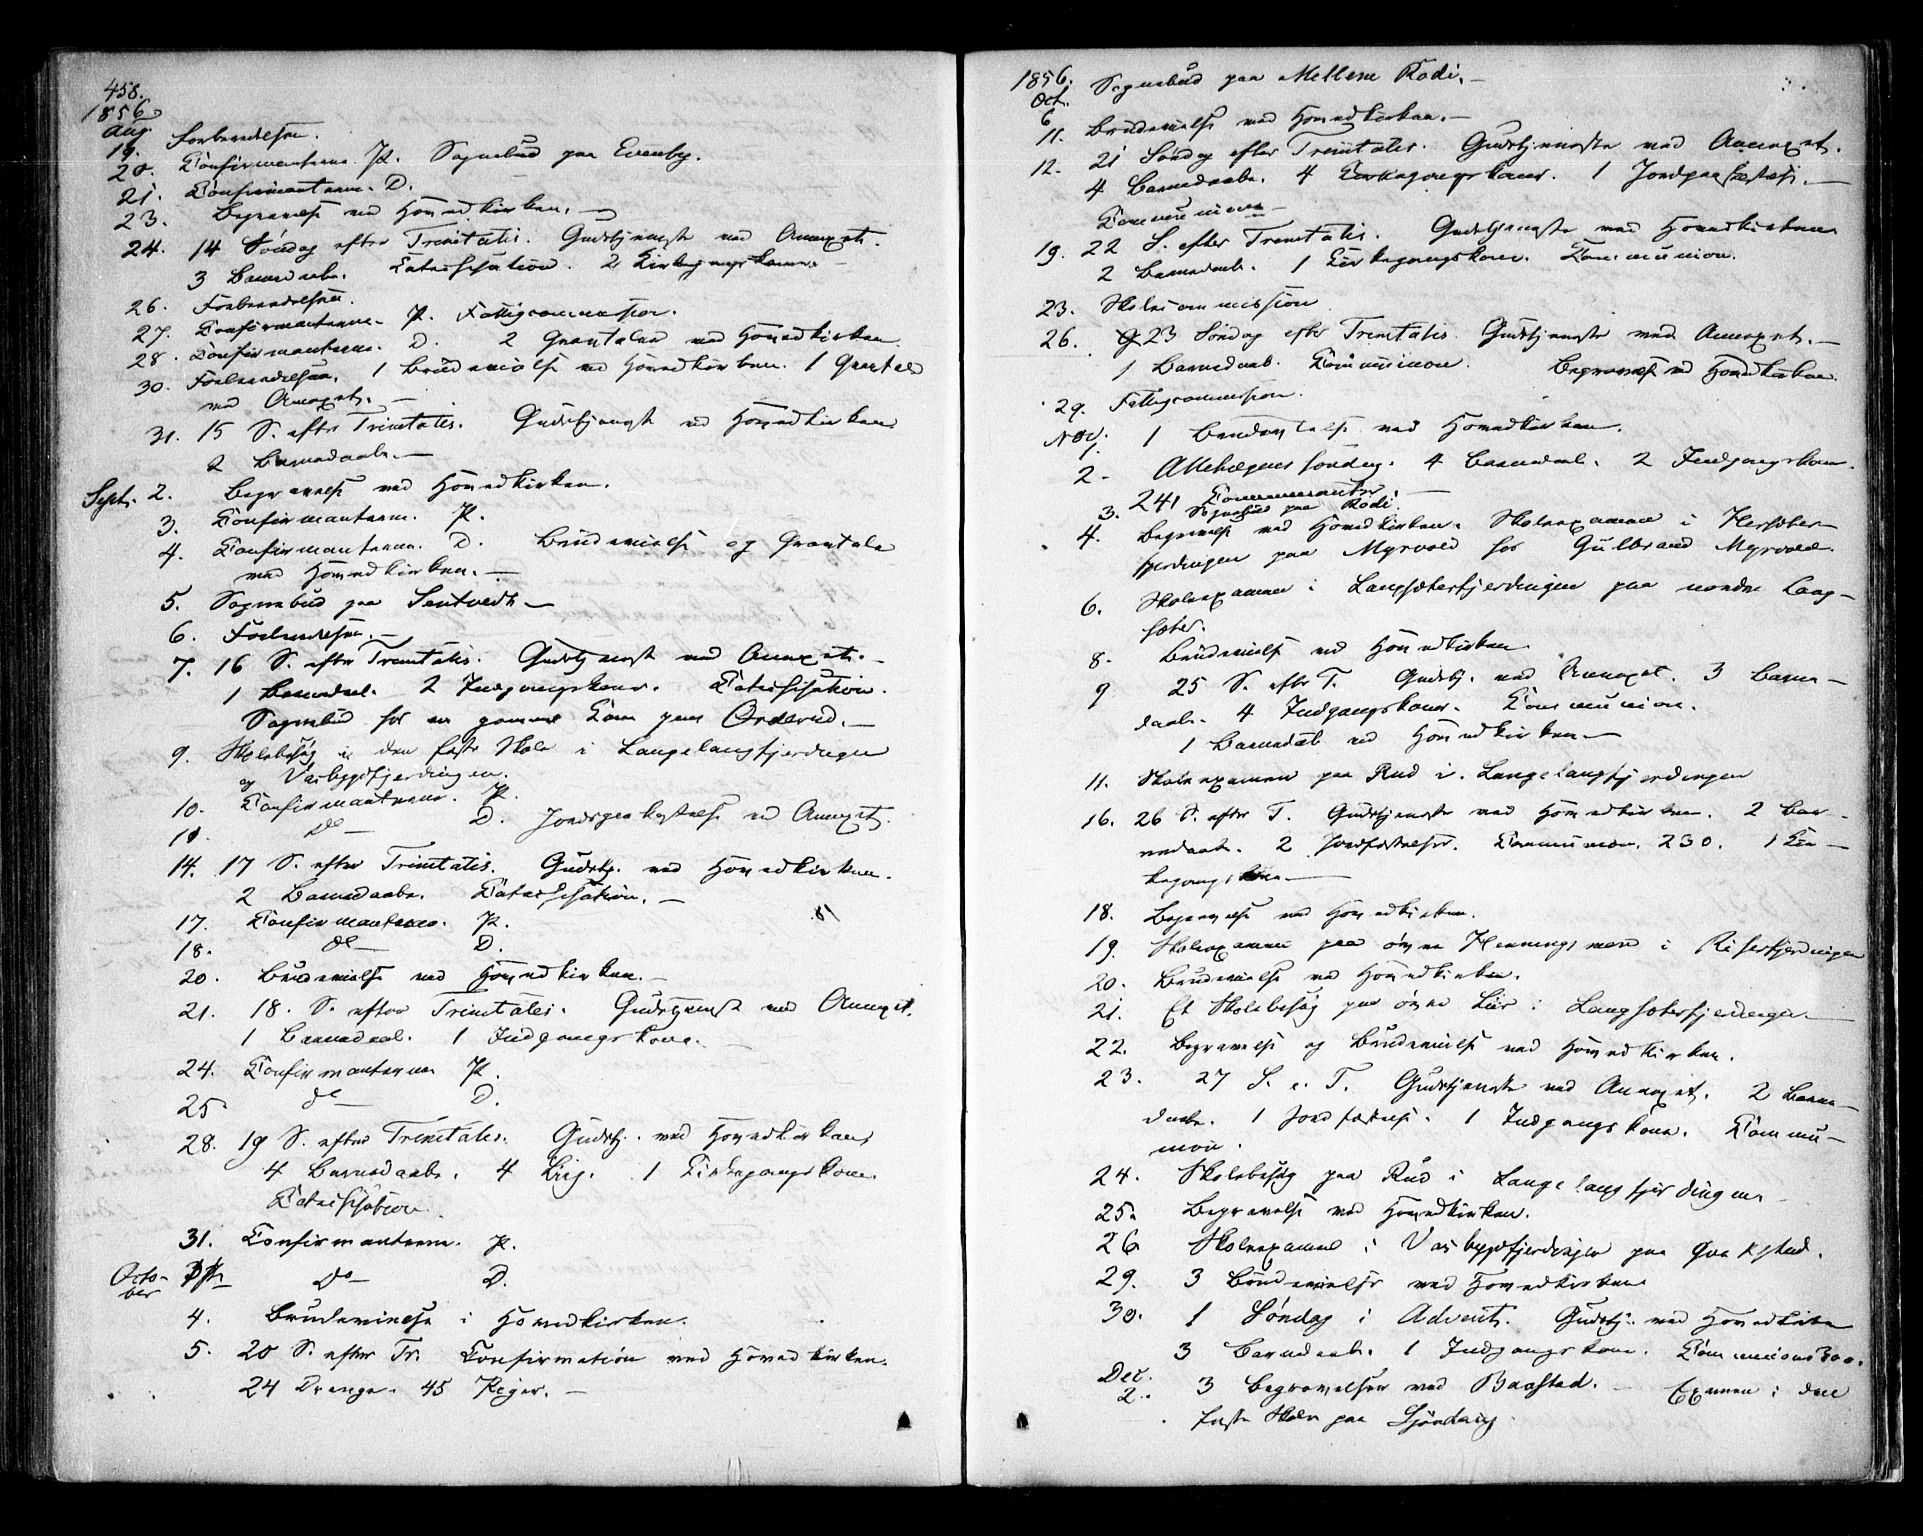 458.
1856
Aug.
19. Forberedelsen.
20. Confirmanterne P. Sognebud paa Evenby.
21. Confirmanterne. D.
23. Begravelse ved Hovedkirken. —
24. 14 Søndag efter Trinitatis. Gudstjeneste ved Annexet.
3 Barnedaabe. Catechisation. 2 Kirkegangskoner. —
26. Forberedelsen.
27. Confirmanterne. P. Fattigcommission.
28. Confirmanterne. D. 2 Gravtaler ved Hovedkirken.
30. Forberedelsen. 1 Brudevielse ved Hovedkirken. 1 Gravtale
ved Annexet. —
31. 15 S. efter Trinitatis. Gudstjeneste ved Hovedkirken.
2 Barnedaabe. —
Sept. 2. Begravelse ved Hovedkirken.
3. Confirmanterne. P.
4. Confirmanterne. D. Brudevielse og Gravtale
ved Hovedkirken. —
5. Sognebud paa Sentvedt —
6. Forberedelsen. —
7. 16 S. efter Trinitatis. Gudstjeneste ved Annexet. —
1 Barnedaab. 2 Indgangskoner. Catechisation.
Sognebud for en gammel Kone paa Orderud. —
9. Skolebesøg i den faste Skole i Langelangfjerdingen
og Vasbygdfjerdingen.
10. Confirmanterne. P.
11. do — D. Jordspaakastelse ved Annexet.
14. 17 S. efter Trinitatis. Gudstj. ved Hovedkirken.
2 Barnedaabe. Catechisation. —
17. Confirmanterne. P.
18. do — D.
20. Brudevielse ved Hovedkirken. —
21. 18. S. efter Trinitatis. Gudstjeneste ved Annexet.
1 Barnedaab. 1 Indgangskone. —
24. Confirmanterne P.
25 do — D.
28. 19 S. efter Trinitatis. Gudstj. ved Hovedkirken,
4 Barnedaabe. 4 Liig. 1 Kirkegangskone.
Catechisation
31. Confirmanterne. P.
Octo-
ber do — D.
4. Brudevielse i Hovedkirken.
5. 20 S. efter Tr. Confirmation ved Hovedkirken.
24 Drenge. 45 Piger. —
1856.
Oct.
6 Sognebud paa Mellem Rødi. —
11. Brudevielse ved Hovedkirken. —
12. 21 Søndag efter Trinitatis. Gudstjeneste ved Annexet.
4 Barnedaabe. 4 Kirkegangskoner. 1 Jordpaakastelse. —
Communion —
19. 22 S. efter Trinitatis. Gudstjeneste ved Hovedkirken
2 Barnedaab. 1 Kirkegangskone. Communion.
23. Skolecommission
26. 23 Søndag efter Trinitatis. Gudstjeneste ved Annexet. —
1 Barnedaab. Communion. Begravelse ved Hovedkirken.
29. Fattigcommission.
Nov.
1. 1 Brudevielse ved Hovedkirken.
2. Allehelgens Søndag. 4 Barnedaab. 2 Indgangskoner.
241 Communicanter. —
3. Sognebud paa Rødi.
4. Begravelse ved Hovedkirken. Skoleexamen i Hersæter-
fjerdingen paa Myrvold hos Gulbrand Myrvold.
6. Skoleexamen i Langsæterfjerdingen paa nordre Lang-
sæter.
8. Brudevielse ved Hovedkirken
9 25 S. efter T. Gudstj. ved Annexet. 3 Barne-
daabe. 4 Indgangskoner. Communion.
1 Barnedaab ved Hovedkirken —
11. Skoleexamen paa Rud i Langelangfjerdingen
16. 26 S. efter T. Gudstjeneste ved Hovedkirken. 2 Bar-
nedaabe. 2 Jordfæstelser. Communion. 230. 1 Kir-
kegangskone —
18. Begravelse ved Hovedkirken.
19. Skoleexamen paa øvre Henningsmoe i Riserfjerdingen
20. Brudevielse ved Hovedkirken.
21. Et Skolebesøg paa øvre Lier i Langsæterfjerdingen —
22. Begravelse og Brudevielse ved Hovedkirken.
23. 27 S. e. T. Gudstjeneste ved Annexet. 2 Barne-
daabe. 1 Jordfæstelse. 1 Indgangskone. Commu-
nion.
24. Skolebesøg paa Rud i Langelangfjerdingen —
25. Begravelse ved Hovedkirken.
26 Skoleexamen i Vasbygdfjerdingen paa Qvakestad.
29. 3 Brudevielser ved Hovedkirken
30. 1 Søndag i Advent. Gudstj. ved Hovedkirken
3 Barnedaab. 1 Indgangskone. Communion 300.
Dec.
2. 3 Begravelser ved Baastad. — Examen i den
faste Skole paa Sjøndeng.